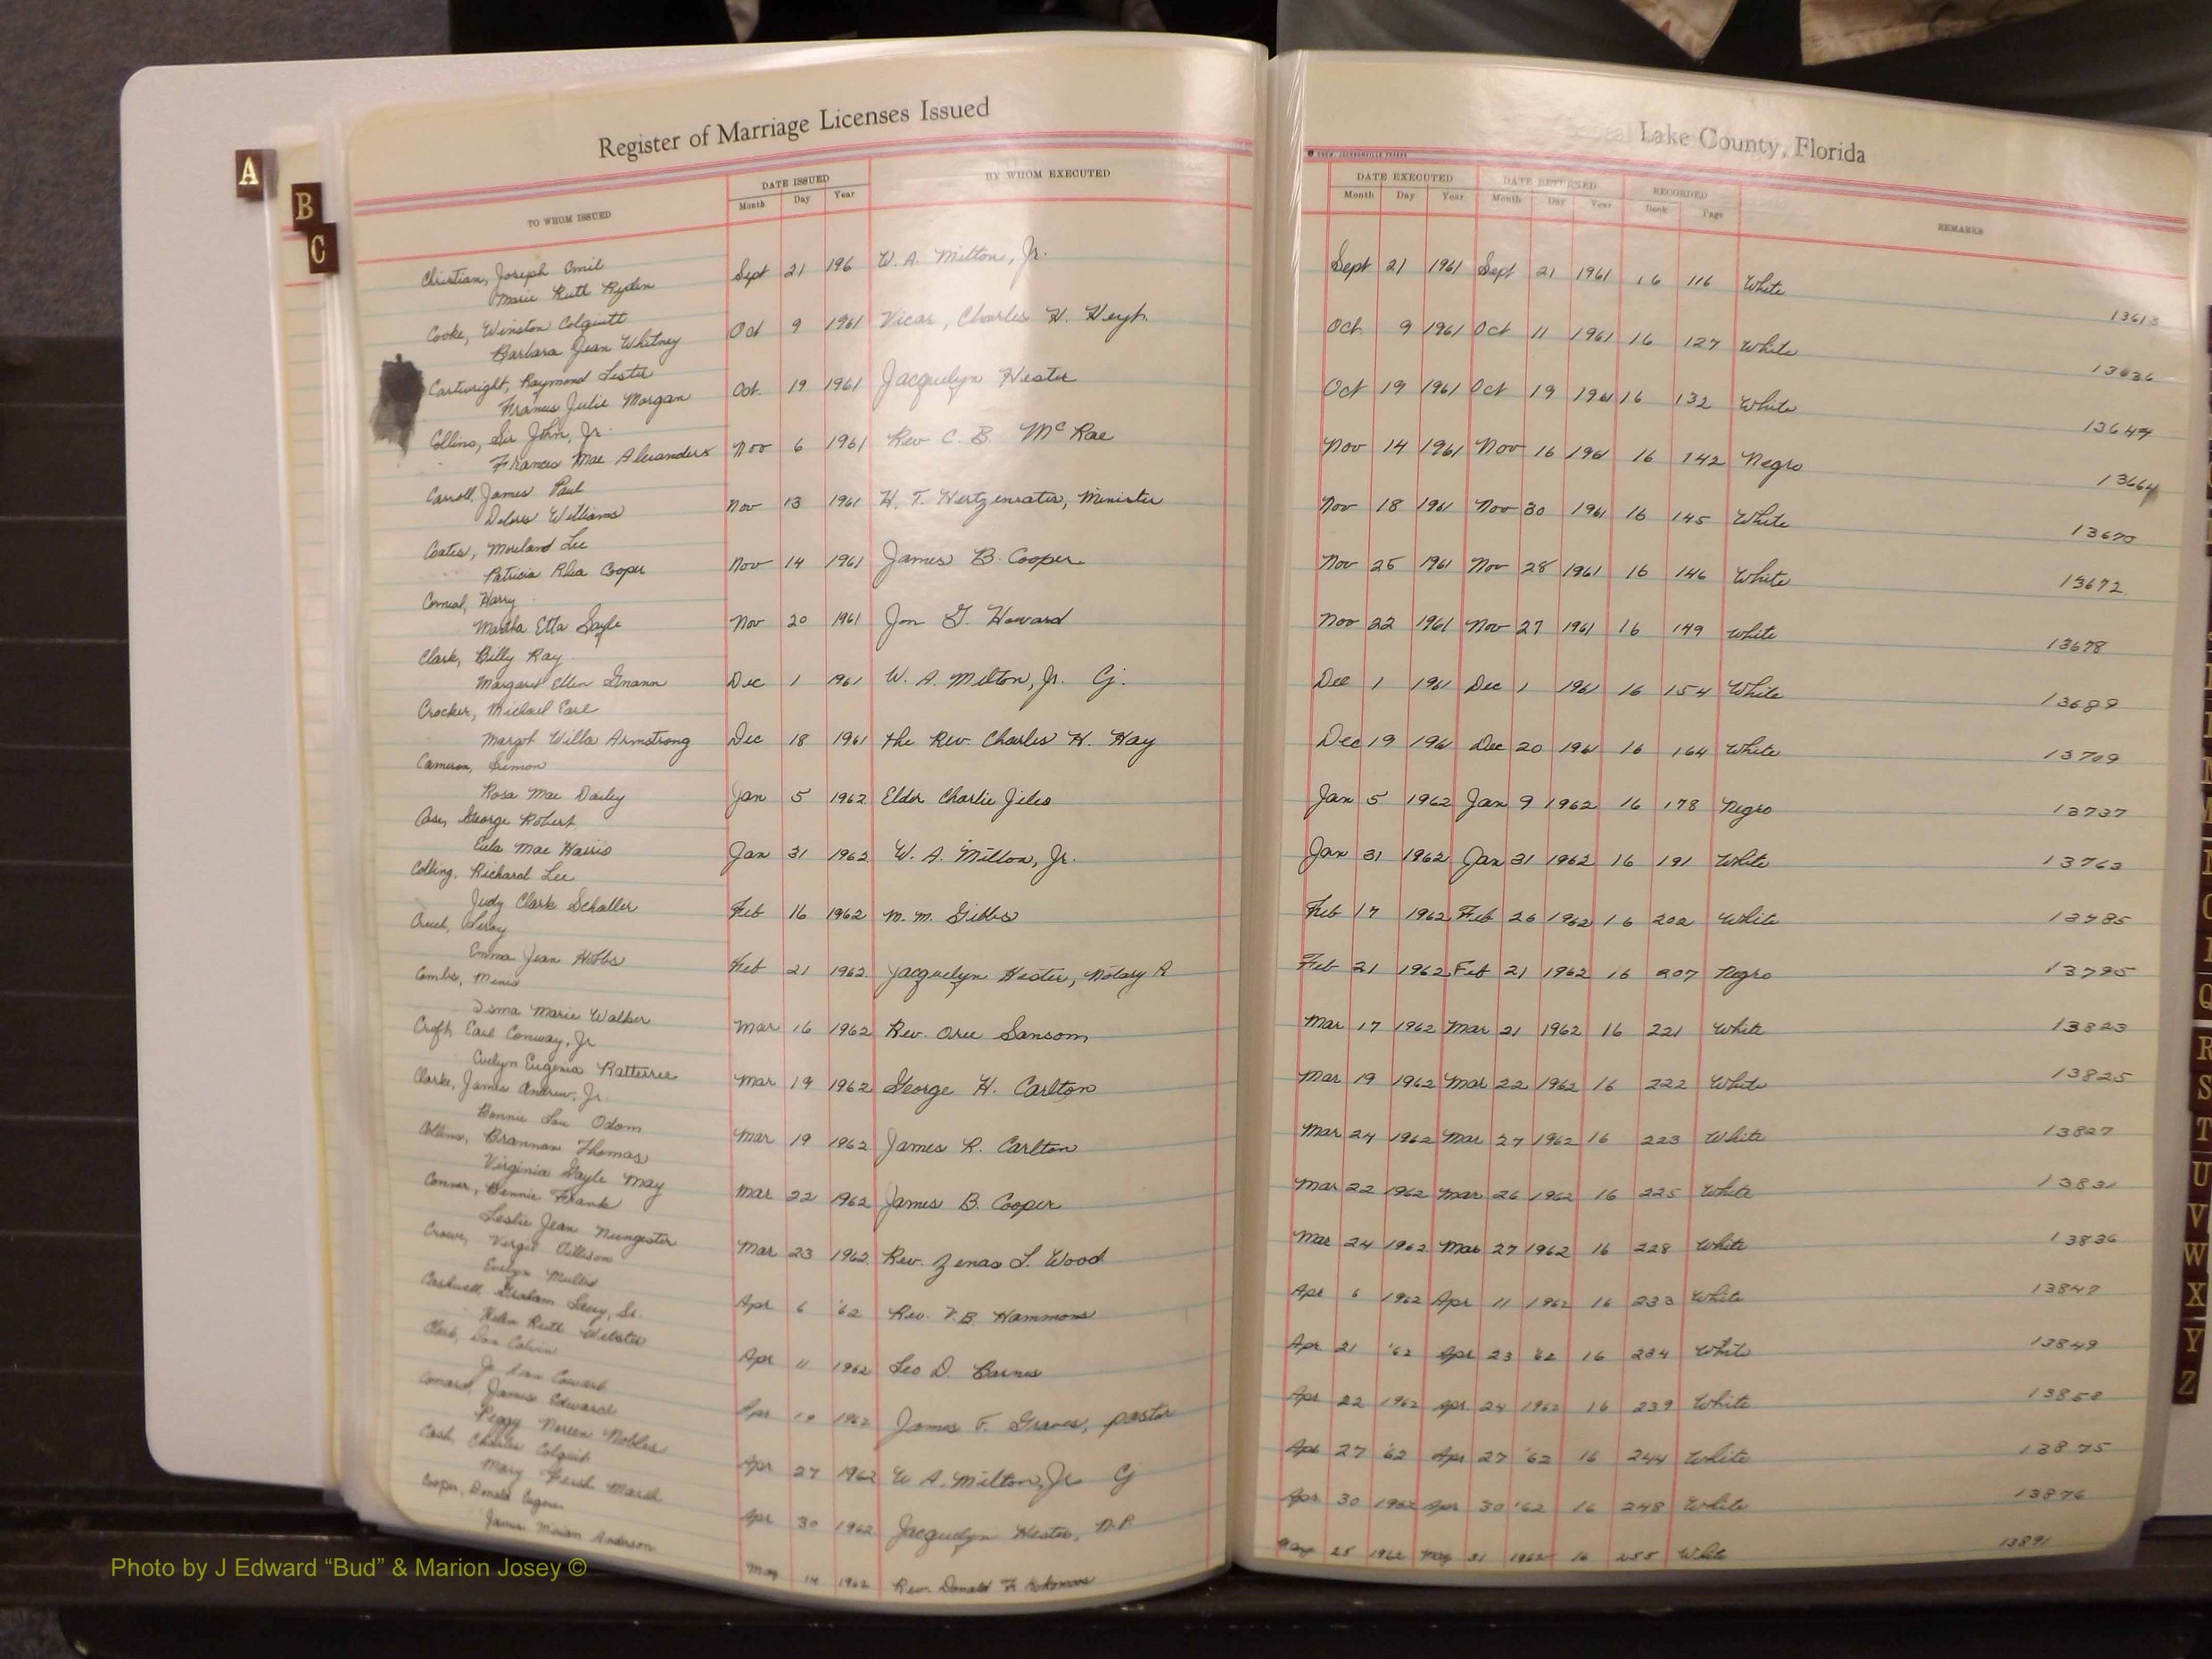 Register of Marriage Licenses Issued
Lake County, Florida
A
B
C
TO WHOM ISSUED
DATE ISSUED
Month Day Year
BY WHOM EXECUTED
DATE EXECUTED
Month Day Year
DATE RETURNED
Month Day Year
RECORDED
Book Page
REMARKS
Christian, Joseph Emil
Marie Ruth Ryden
Sept 21 196 W. A. Milton, Jr. Sept 21 1961 Sept 21 1961 16 116 White
13613
Cooke, Winston Colquitt
Barbara Jean Whitney
Oct 9 1961 Vicar, Charles H. Oct 9 1961 Oct 11 1961 16 127 White
13636
Cartwright, Raymond Lester
Frances Julie Morgan
Oct. 19 1961 Jacquelyn Hester Oct 19 1961 Oct 19 1961 16 132 White
Collins, Sir John, Jr.
Frances Mae
Nov 6 1961 Rev C. B. McRae Nov 14 1961 Nov 16 1961 16 142 Negro
13664
Carroll, James Paul
Delores Williams
Nov 13 1961 H. T. Minister Nov 18 1961 Nov 30 1961 16 145 White
13670
Coates, Moreland Lee
Patricia Rhea Cooper
Nov 14 1961 James B. Cooper Nov 25 1961 Nov 28 1961 16 146 White
13672
Harry
Martha Etta Sayle
Nov 20 1961 Jon G. Howard Nov 22 1961 Nov 27 1961 16 149 White
13678
Clark, Billy Ray
Margaret Ellen Gnann
Dec 1 1961 W. A. Milton, Jr. Cj. Dec 1 1961 Dec 1 1961 16 154 White
13689
Crocker, Michael Earl
Margot Willa Armstrong
Dec 18 1961 The Rev. Charles H. Hay Dec 19 1961 Dec 20 1961 16 164 White
13709
Cameron, Simon
Rosa Mae Dailey
Jan 5 1962 Elder Charlie Jiles Jan 5 1962 Jan 9 1962 16 178 Negro
13737
Case, George Robert
Eula Mae Harris
Jan 31 1962 W. A. Milton, Jr. Jan 31 1962 Jan 31 1962 16 191 White
13763
Colling, Richard Lee
Judy Clark Schaller
Feb 16 1962 M. M. Gibbs Feb 17 1962 Feb 26 1962 16 202 White
13785
Leroy
Emma Jean Hobbs
Feb 21 1962 Jacquelyn Hester, Notary P Feb 21 1962 Feb 21 1962 16 207 Negro
13795
Combs,
Marie Walker
Mar 16 1962 Rev. Sansom Mar 17 1962 Mar 21 1962 16 221 White
13823
Croft, Earl Conway, Jr
Evelyn Eugenia Ratteree
Mar 19 1962 George H. Carlton Mar 19 1962 Mar 22 1962 16 222 White
13825
Clarke, James Andrew, Jr.
Bonnie Lou Odom
Mar 19 1962 James R. Carlton Mar 24 1962 Mar 27 1962 16 223 White
13827
Collins, Brannan Thomas
Virginia Gayle May
Mar 22 1962 James B. Cooper Mar 22 1962 Mar 26 1962 16 225 White
13831
Conner, Bennie Frank
Leslie Jean Nungester
Mar 23 1962 Rev. Zenas L. Wood Mar 24 1962 Mar 27 1962 16 228 White
13836
Crowe, Virgil
Evelyn
Apr 6 '62 Rev. V. B. Hammons Apr 6 1962 Apr 11 1962 16 233 White
13847
Caskwell, Graham Sr.
Helen Ruth Webster
Apr 11 1962 Leo D. Barnes Apr 21 '62 Apr 23 '62 16 234 White
13849
Calvin
Apr 1962 James F. Graves, pastor Apr 22 1962 Apr 24 1962 16 239 White
13858
Conard, James Edward
Peggy Noreen Nobles
Apr 27 1962 W A. Milton, Jr Cj Apr 27 '62 Apr 27 '62 16 244 White
13875
Cash, Charles Colquitt
Mary March
Apr 30 1962 Jacquelyn Hester, N.P. Apr 30 1962 Apr 30 '62 16 248 White
13876
Cooper, Donald Eugene
Miriam Anderson
May 14 1962 Rev. Donald F. May 25 1962 May 31 1962 16 255 White
13891
Q
R
S
T
U
V
W
X
Y
Z
Photo by J Edward “Bud” & Marion Josey ©